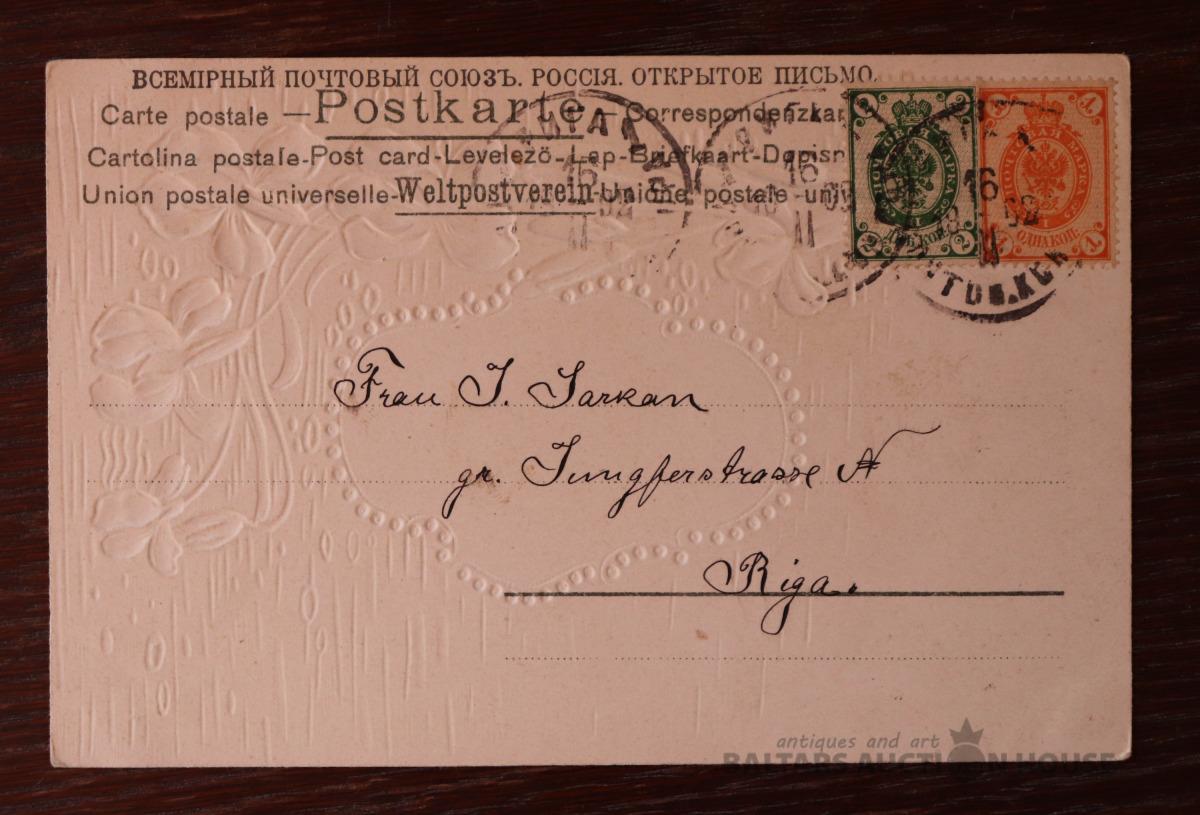 ВСЕМІРНЫЙ ПОЧТОВЫЙ СОЮЗЪ. РОССІЯ. ОТКРЫТОЕ ПИСЬМО.
Carte postale —Postkarte— Correspondenzkar
Cartolina postale-Post card-Levelező-Lap-Briefkaart-Dopisn
Union postale universelle-Weltpostverein-Unione postale uni
ПОЧТОВАЯ МАРКА
ОДНА КОП.
16
16
16
Frau J. Sarkan
gr. Jungferstrasse №
Riga.
antiques and art
BALTARS AUCTION HOUSE